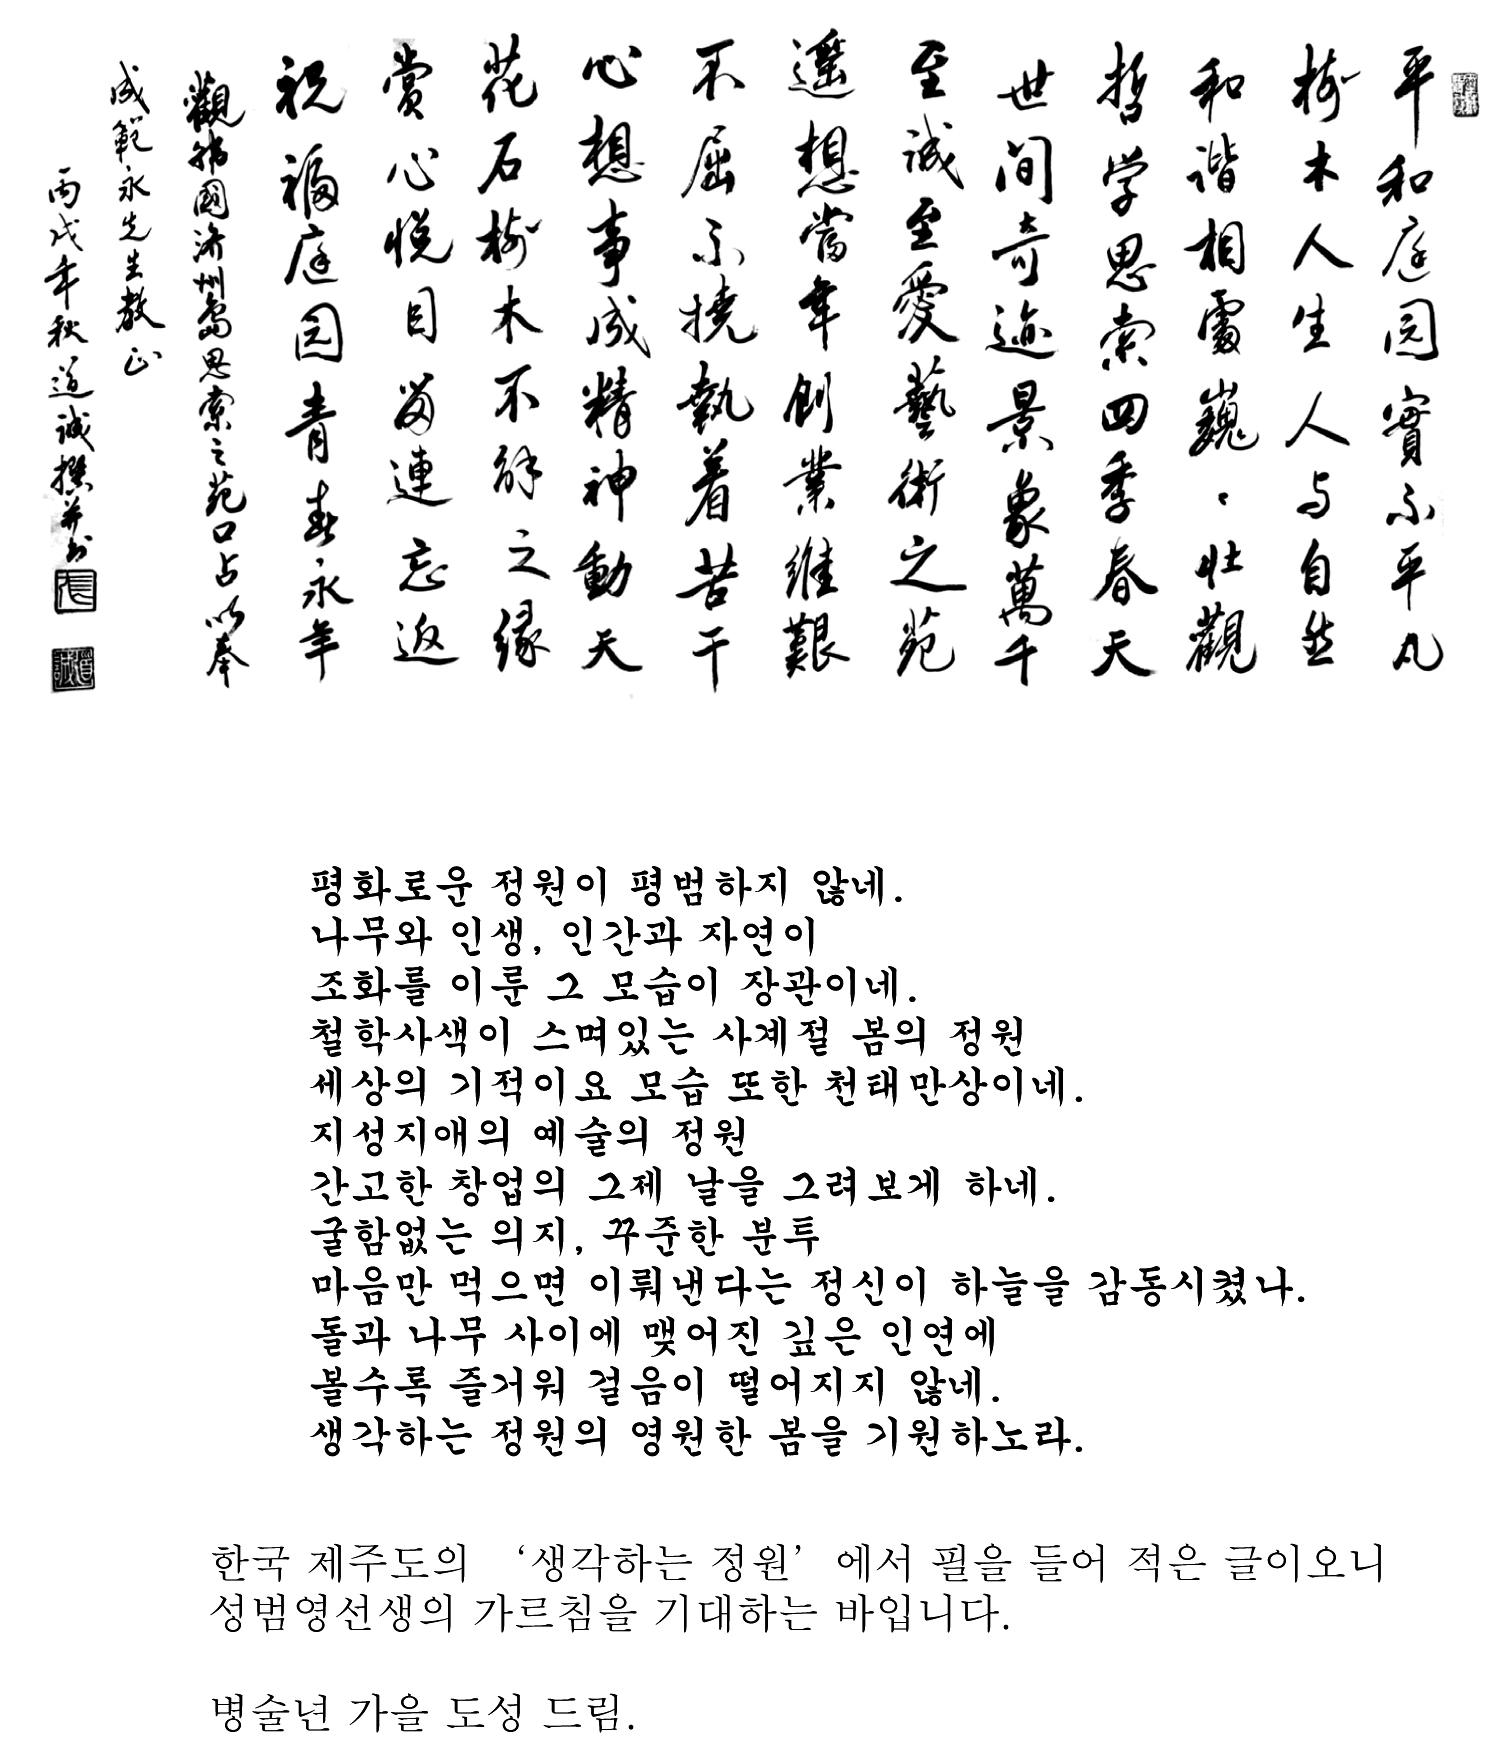 平和庭园實不平凡
树木人生人与自然
和谐相處巍巍壮觀
哲学思索四季春天
世间奇迹景象萬千
至诚至爱藝術之苑
遥想當年創業维艱
不屈不撓執着苦干
心想事成精神動天
花石树木不解之缘
赏心悦目留連忘返
祝福庭园青春永年
觀韩國济州島思索之苑口占以奉
成範永先生教正
丙戌年秋道诚撰并书
평화로운 정원이 평범하지 않네.
나무와 인생, 인간과 자연이
조화를 이룬 그 모습이 장관이네.
철학사색이 스며있는 사계절 봄의 정원
세상의 기적이요 모습 또한 천태만상이네.
지성지애의 예술의 정원
간고한 창업의 그제 날을 그려보게 하네.
굴함없는 의지, 꾸준한 분투
마음만 먹으면 이뤄낸다는 정신이 하늘을 감동시켰나.
돌과 나무 사이에 맺어진 깊은 인연에
볼수록 즐거워 걸음이 떨어지지 않네.
생각하는 정원의 영원한 봄을 기원하노라.
한국 제주도의 ‘생각하는 정원’에서 필을 들어 적은 글이오니
성범영선생의 가르침을 기대하는 바입니다.
병술년 가을 도성 드림.